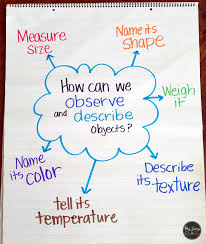 Measure
size
Name its
shape
How can we
observe
and describe
objects?
Weigh
it
Name
its
color
Describe
its
texture
tell its
temperature